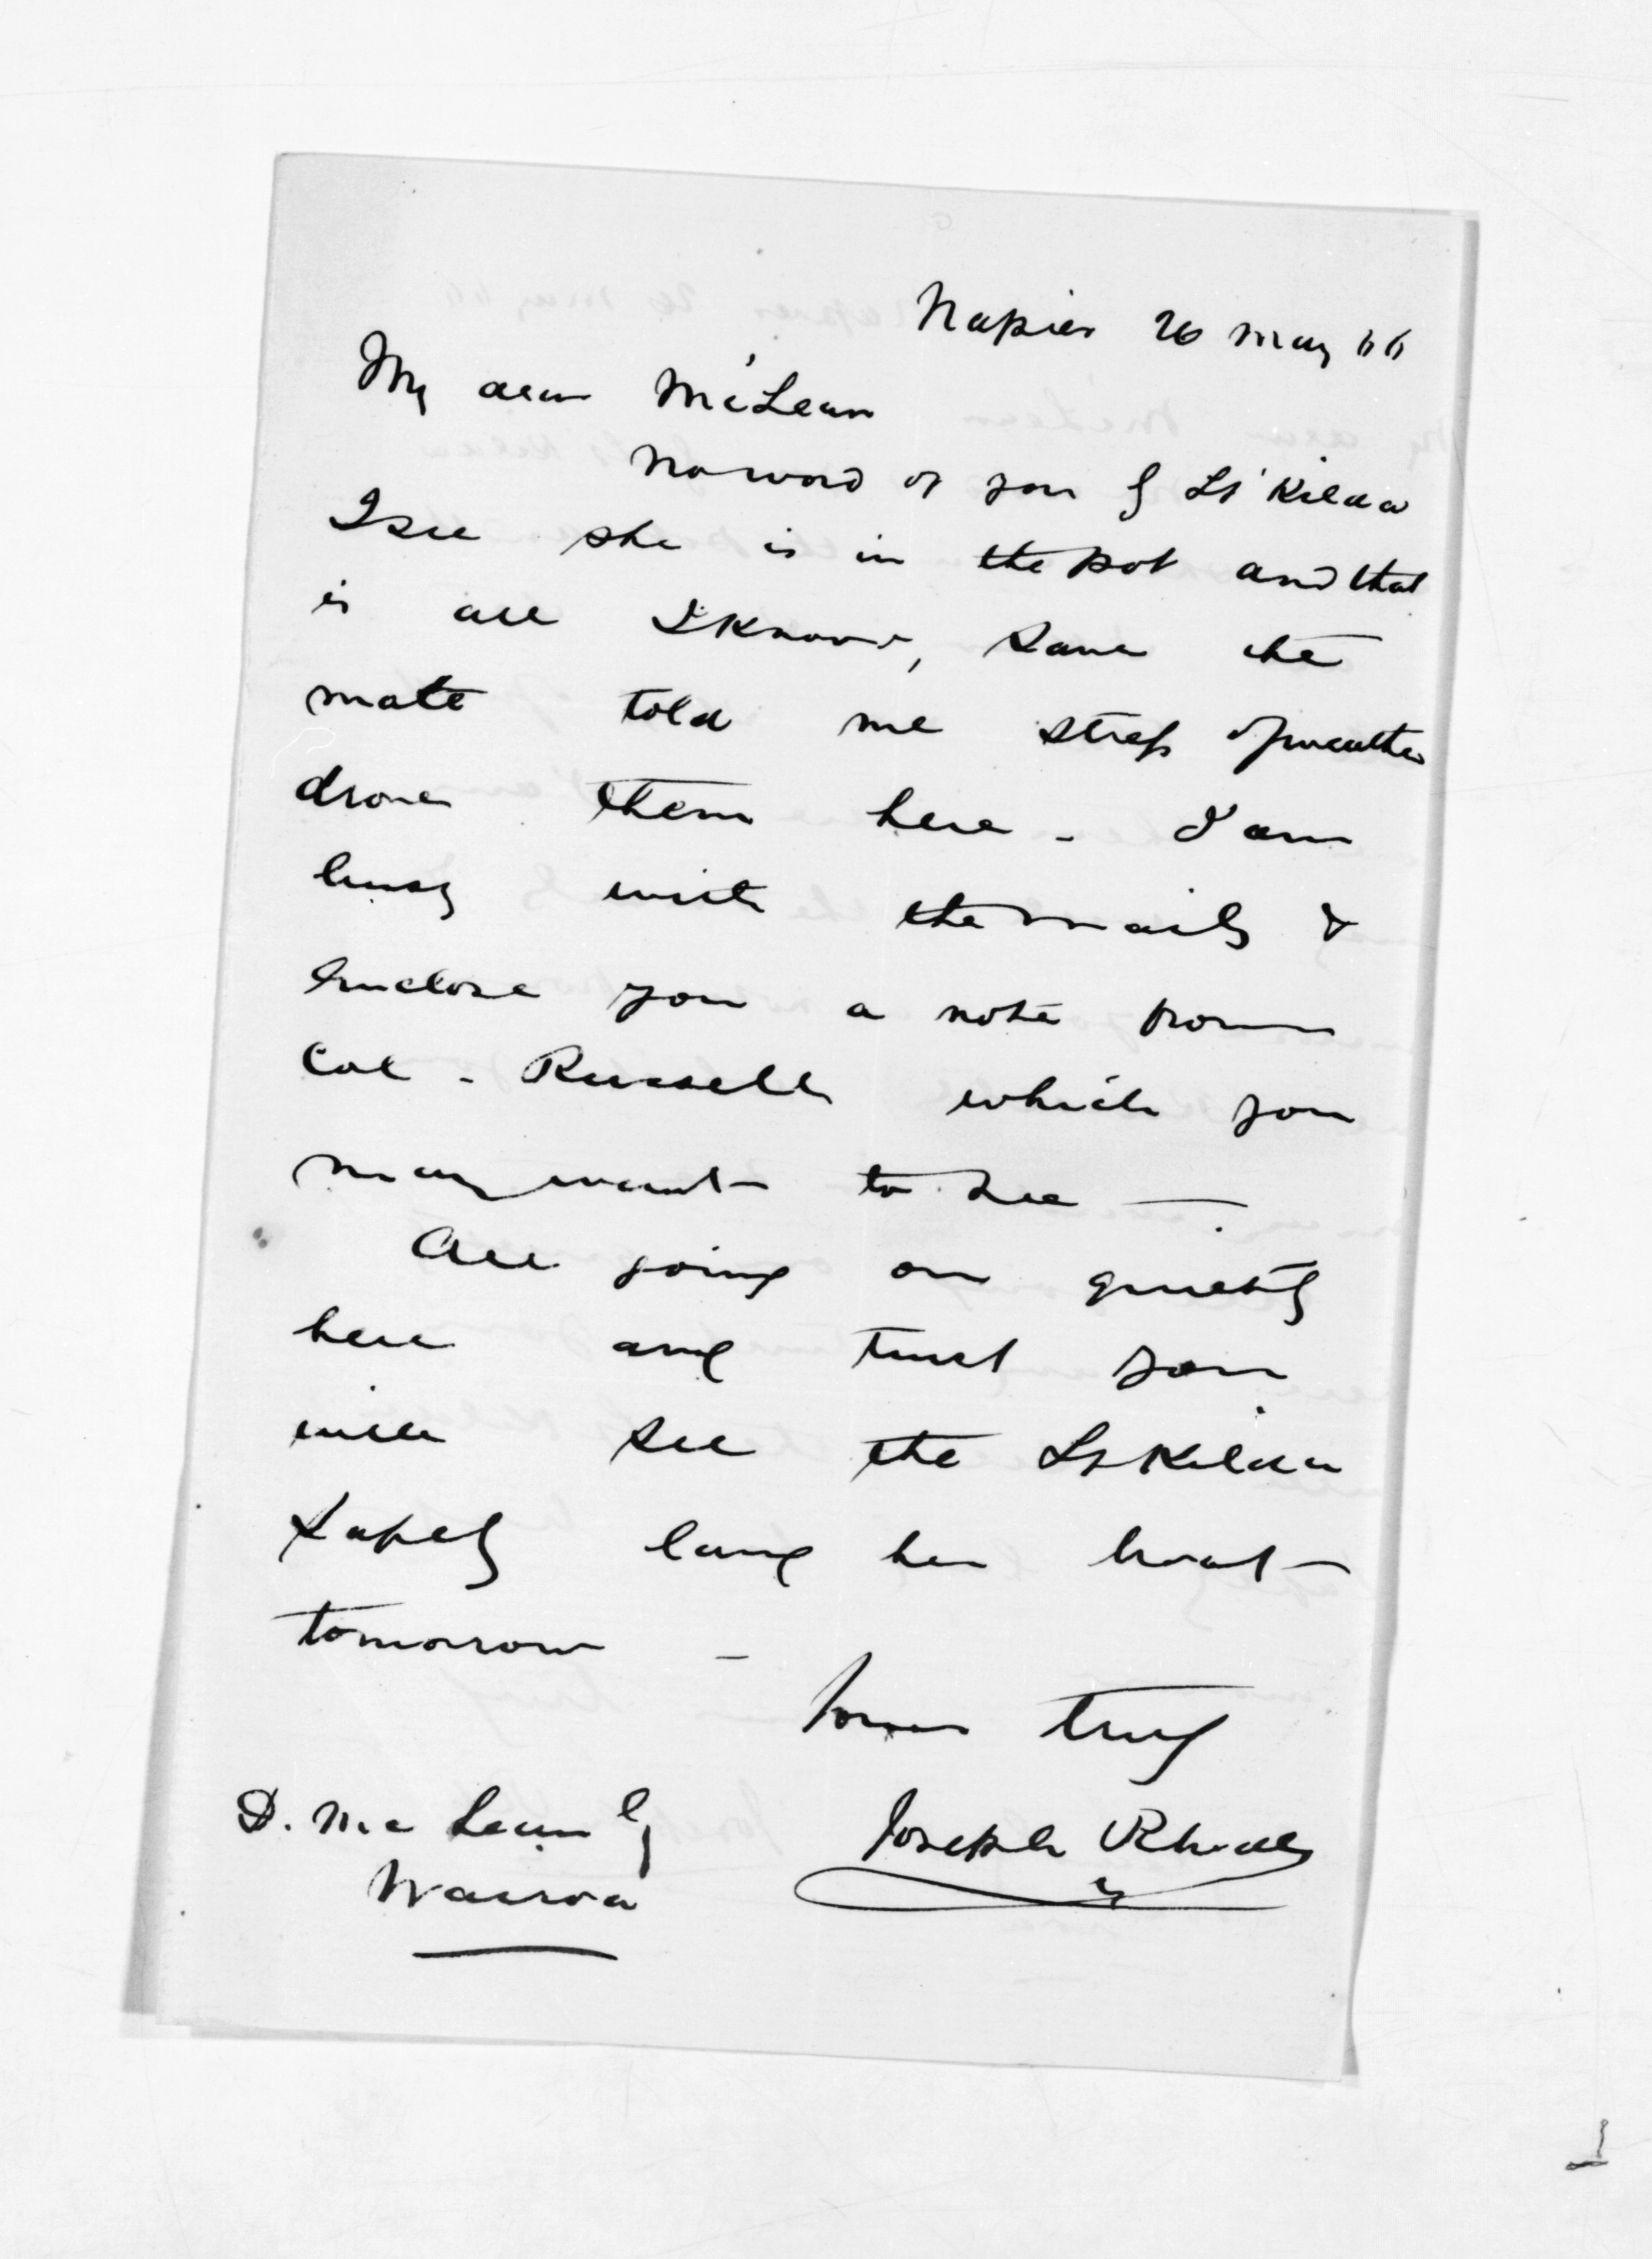 Napier 26 May 66
My dear McLean
No word of you by St Kilda
I see she is in the port and that
is all I know, save the
mate told me stress of weather
drove them here - I am
busy with the mails &
enclose you a note from
Col - Russell which you
may want to see -
All going on quietly
here and trust you
will see the St Kilda
safely land her boat
tomorrow -
Yours truly
Joseph Rhodes
D. McLean Esq
Wairoa